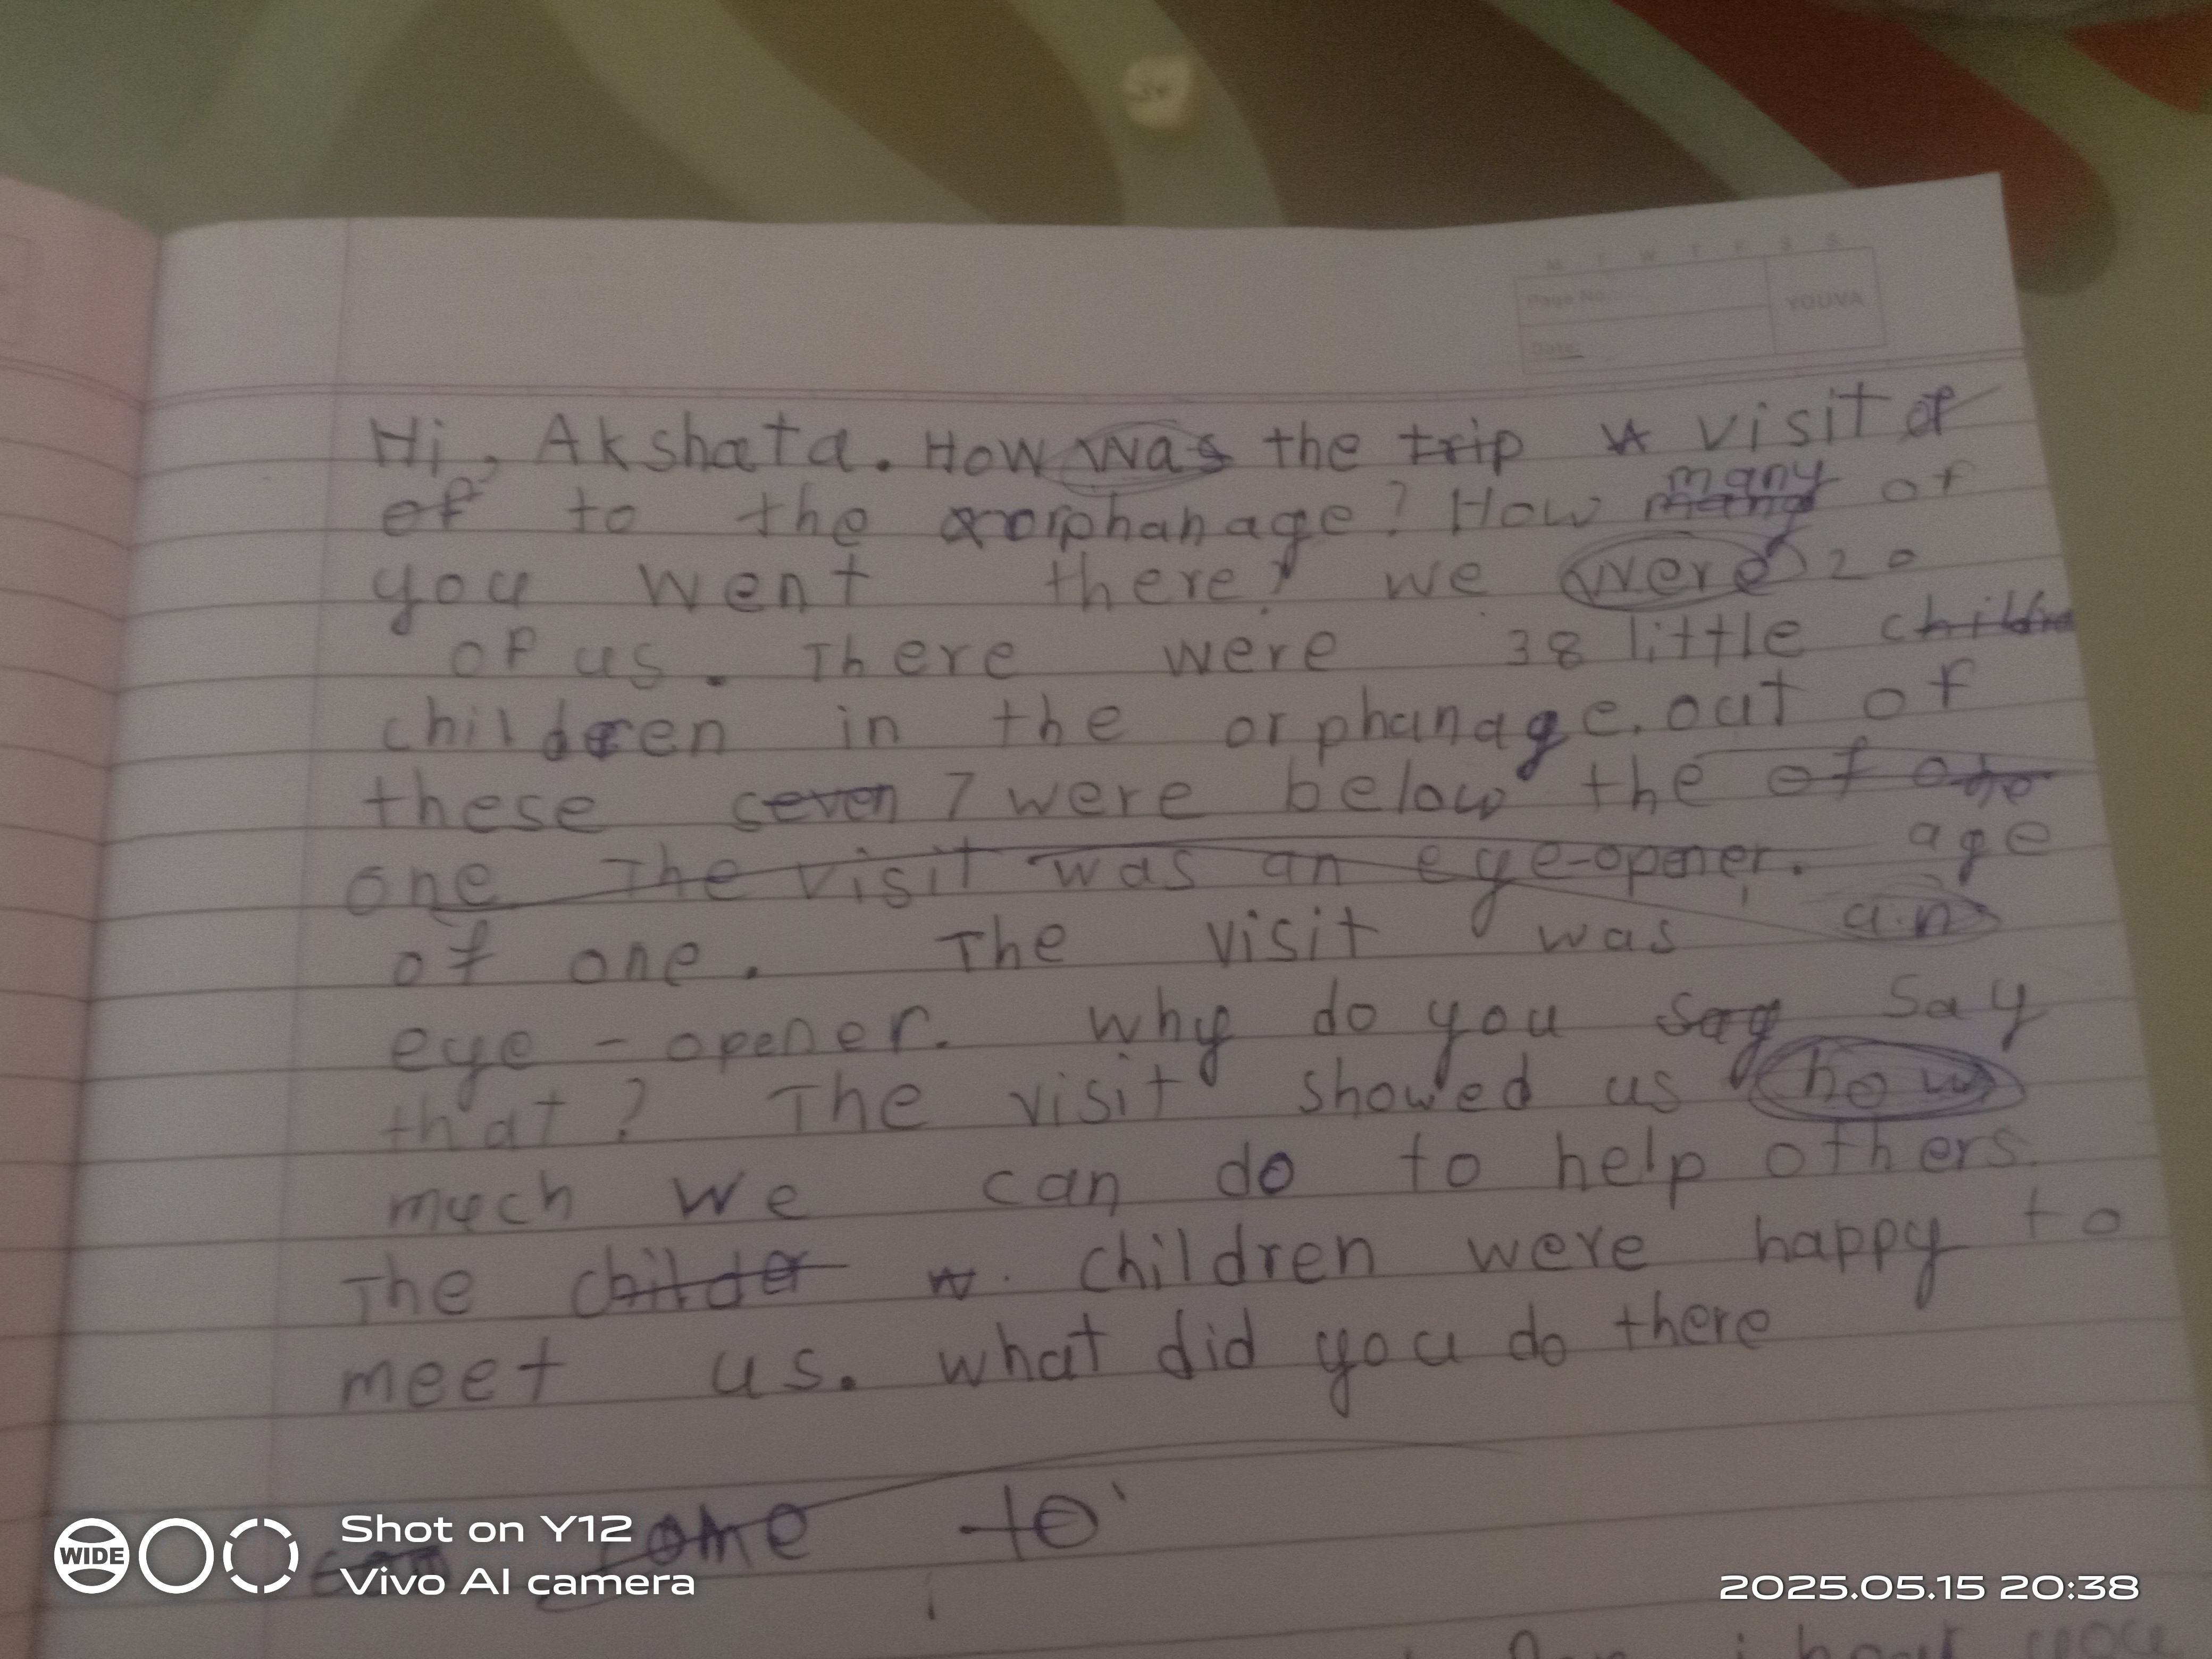 M T W T F S S
Page No.:
YOUVA
Date:
Hi, Akshata. How was the trip visit of
of to the orphanage? How many many of
you went there? we were 20
of us. There were 38 little
children in the orphanage. out of
these seven 7 were below the of one
one The visit was an eye-opener. age
of one. The visit was an
eye-opener. why do you say say
that? The visit showed us how
much we can do to help others.
The childer w. children were happy to
meet us. what did you do there
come to
WIDE
Shot on Y12
Vivo AI camera
2025.05.15 20:38